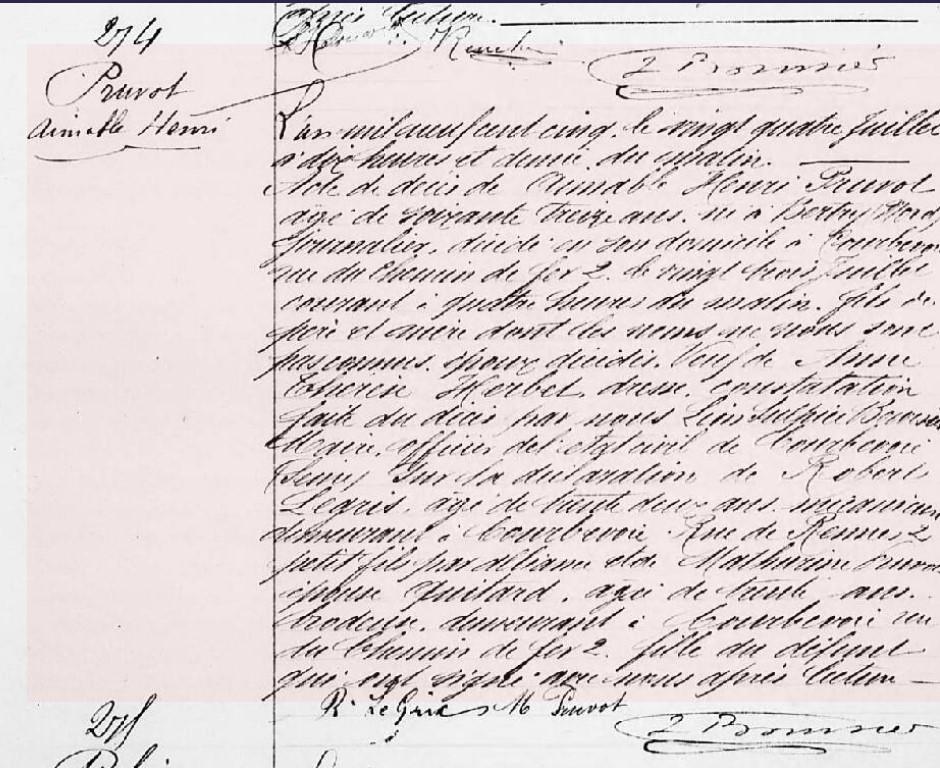 274
Pruvot
Aimable Henri
après lecture.
L'an mil neuf cent cinq, le vingt quatre Juillet
à dix heures et demie du matin.
Acte de décès de Aimable Henri Pruvot
âgé de soixante treize ans, né à Bertry (Nord)
Journalier, décédé en son domicile à Courbevoie
rue du Chemin de fer 2, le vingt trois Juillet
courant à quatre heures du matin, fils de
père et mère dont les noms ne nous sont
pas connus, époux décédés. Veuf de Anne
Thérèse Herbet. constatation
faite du décès par nous
Maire, officier de l'état civil de Courbevoie
(Seine) Sur la déclaration de Robert
Legris, âgé de trente deux ans, mécanicien
demeurant à Courbevoie Rue de Rennes 2
petit fils par alliance et de Mathurine Pruvot
épouse Guitard, âgée de trente ans,
brodeuse, demeurant à Courbevoie rue
du Chemin de fer 2, fille du défunt
qui ont signé avec nous après lecture
R. Le Gris M Pruvot
275